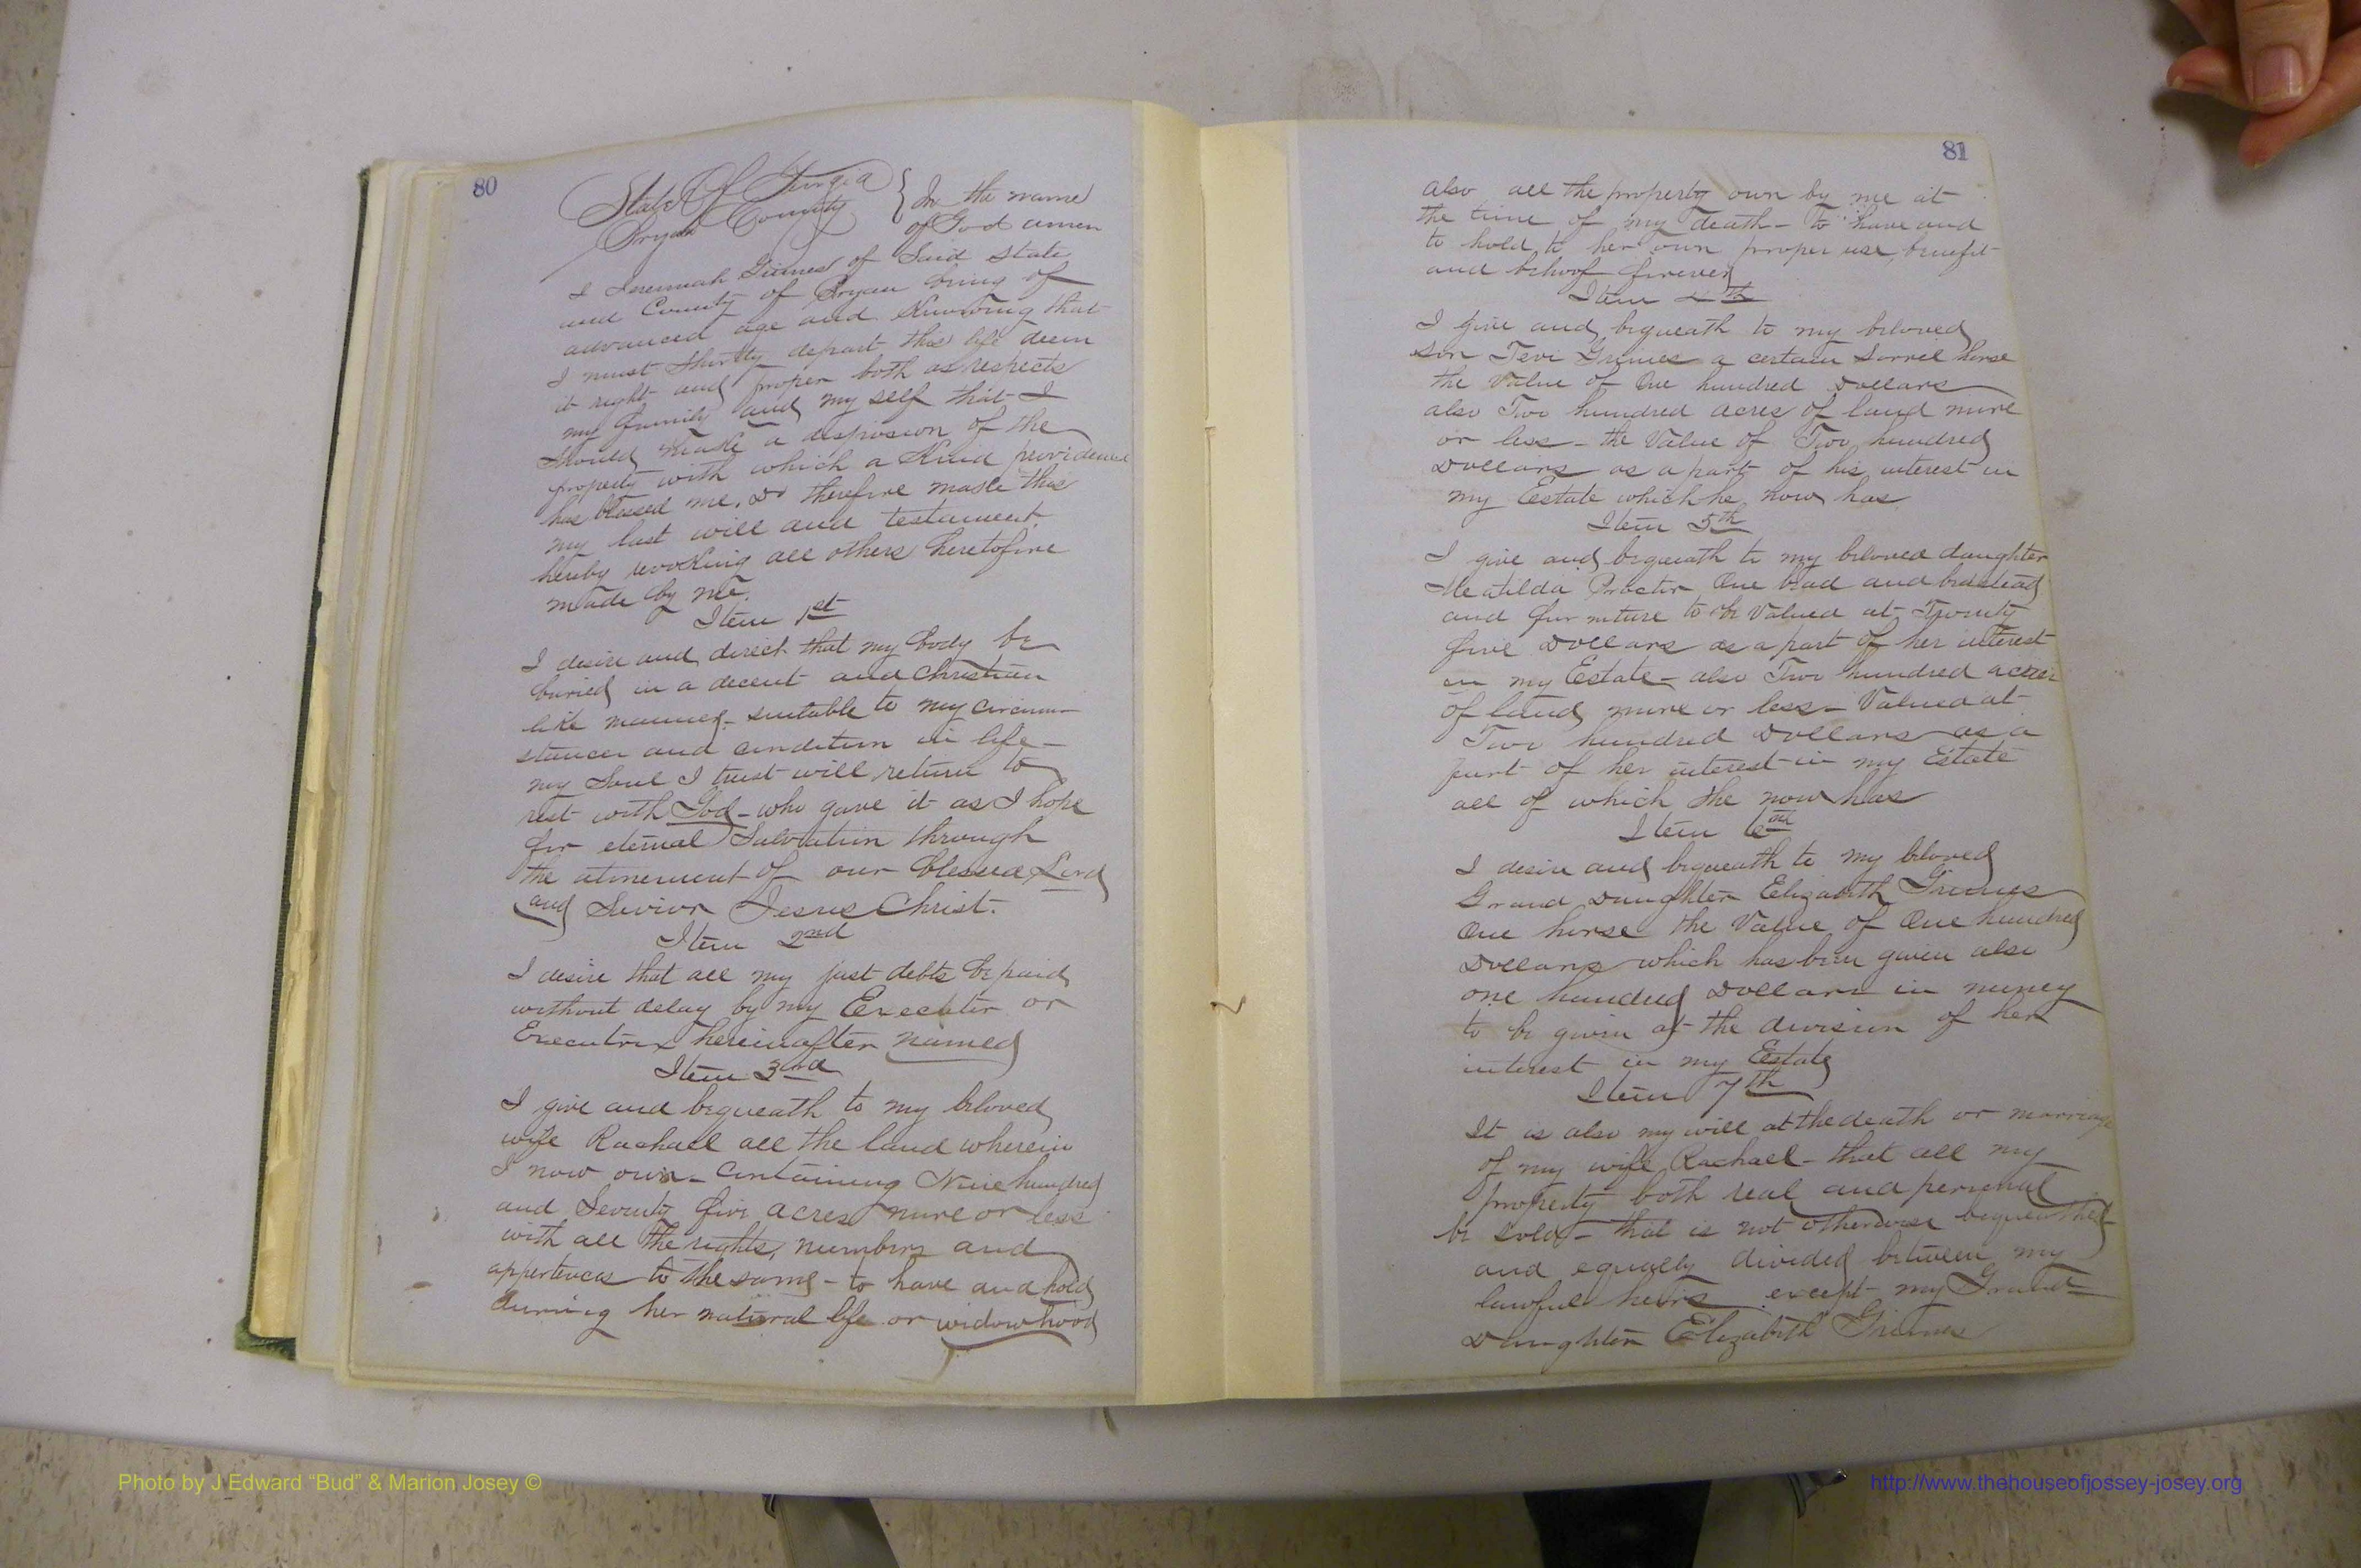 80
State Of Georgia
Bryan County
{ In the name
of God amen
I Jeremiah Grimes of Said State
and County of Bryan being of
advanced age and Knowing that
I must shortly depart this life deem
it right and proper both as respects
my family and my self that I
should make a disposion of the
property with which a Kind providence
has blessed me. Do therefore make this
my last will and testament.
hereby revoking all others heretofore
made by me.
Item 1st
I desire and direct that my body be
buried in a decent and Christian
like manner - suitable to my circum-
stances and condition in life -
my Soul I trust will return to
rest with God - who gave it as I hope
for eternal Salvation through
the atonement of our blessed Lord
and Savior Jesus Christ.
Item 2nd
I desire that all my just debts be paid
without delay by my Executor or
Executrix hereinafter named
Item 3rd
I give and bequeath to my beloved
wife Rachael all the land wherein
I now own - containing Nine hundred
and Seventy five acres more or less
with all the rights, numbers and
appertences to the same - to have and hold
durring her natural life or widowhood
81
also all the property own by me at
the time of my Death - To have and
to hold, to her own proper use, benefit
and behoof forever
Item 4th
I give and bequeath to my beloved
son Levi Grimes a certain Sorrel horse
the Value of One hundred Dollars
also Two hundred acres of land more
or less - the Value of Two hundred
Dollars as a part of his interest in
my Estate which he now has
Item 5th
I give and bequeath to my beloved daughter
Meatilda Proctor One bead and beadstead
and furniture to be Valued at Twenty
five Dollars as a part of her interest
in my Estate - also Two hundred acres
of land more or less - Valued at
Two hundred Dollars as a
part of her interest in my Estate
all of which She now has
Item 6nd
I desire and bequeath to my beloved
Grand Daughter Elizabeth Grimes
One horse the Value of One hundred
Dollars which has been given also
one hundred Dollars in money
to be given at the division of her
interest in my Estate
Item 7th
It is also my will at the death or marriage
of my wife Rachael - that all my
property both real and personal
be sold - that is not otherwise bequeathed
and equally divided between my
lawful heirs except my Grand=
Daughter Elizabeth Grimes
Photo by J Edward “Bud” & Marion Josey ©
http://www.thehouseofjossey-josey.org